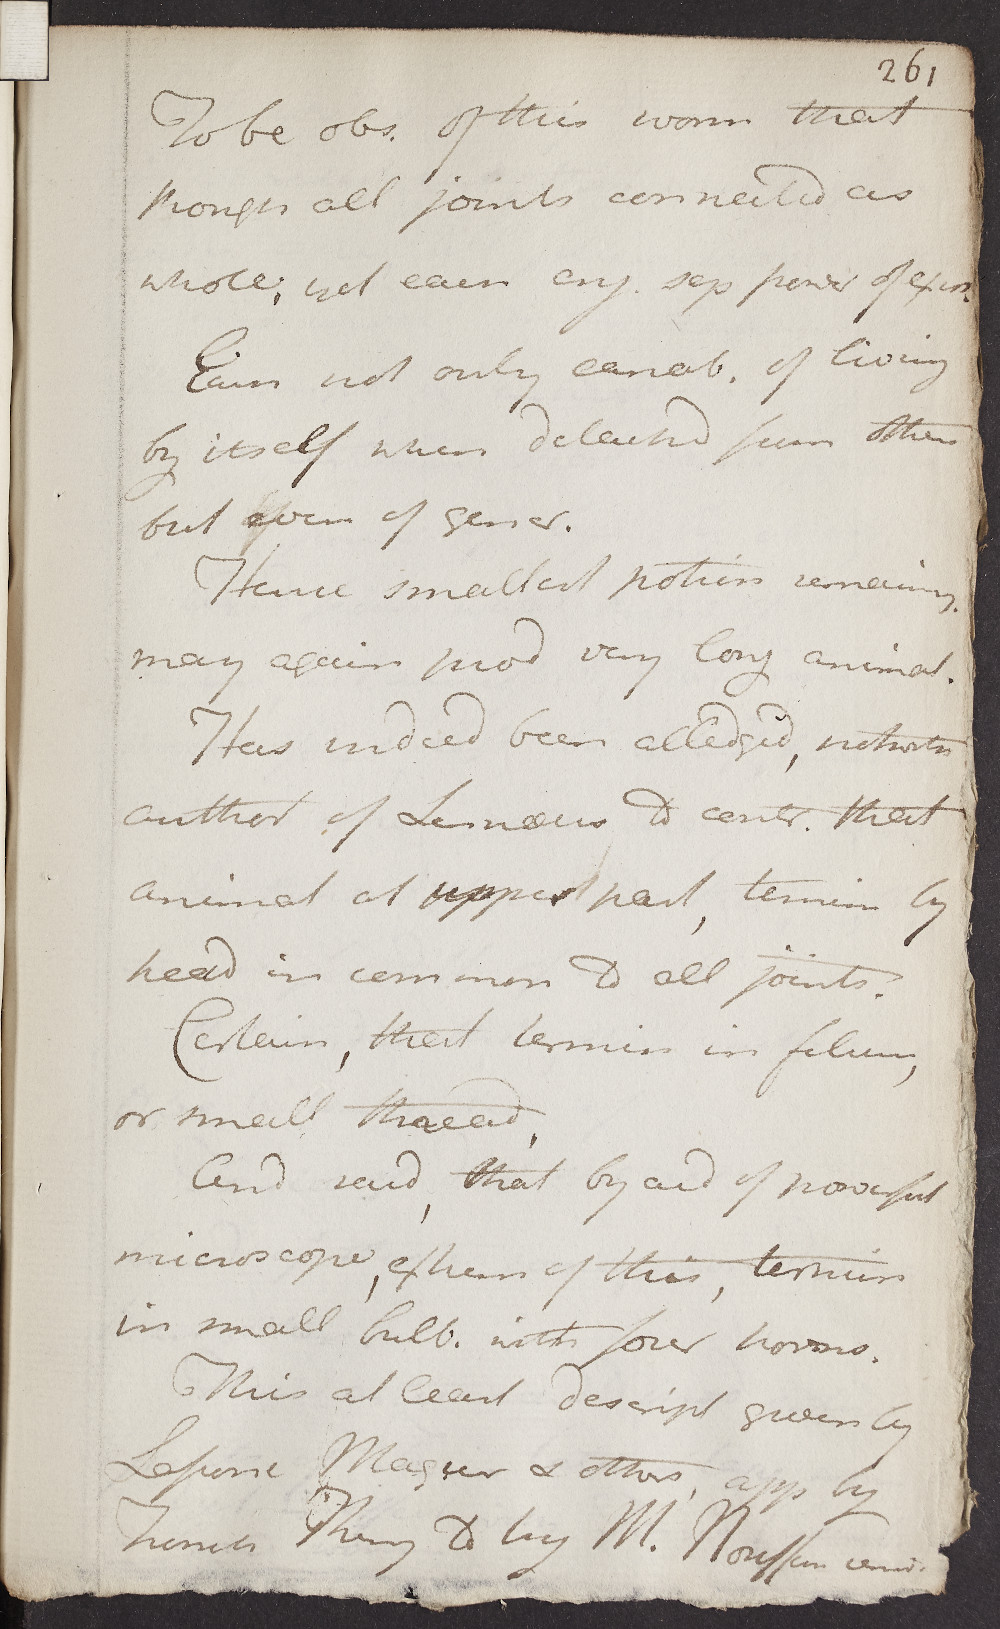 261
To be obs. of this worm that
though all joints connected as
whole; yet each enj. sep power of exis.
Each not only capab. of living
by itself when detached from others
but even of gener.
Hence smallest portion remaining.
may again prod very long animal.
Has indeed been alledged, notwith
author of Linnæus to contr. that
animal at upper part, termin by
head in common to all joints.
Certain, that termin in filum,
or small thread,
And said, that by aid of powerful
microscope, extrem of this, termin
in small bulb. with four horns.
This at least descript given by
& others, app by
French to by M. Nouffer